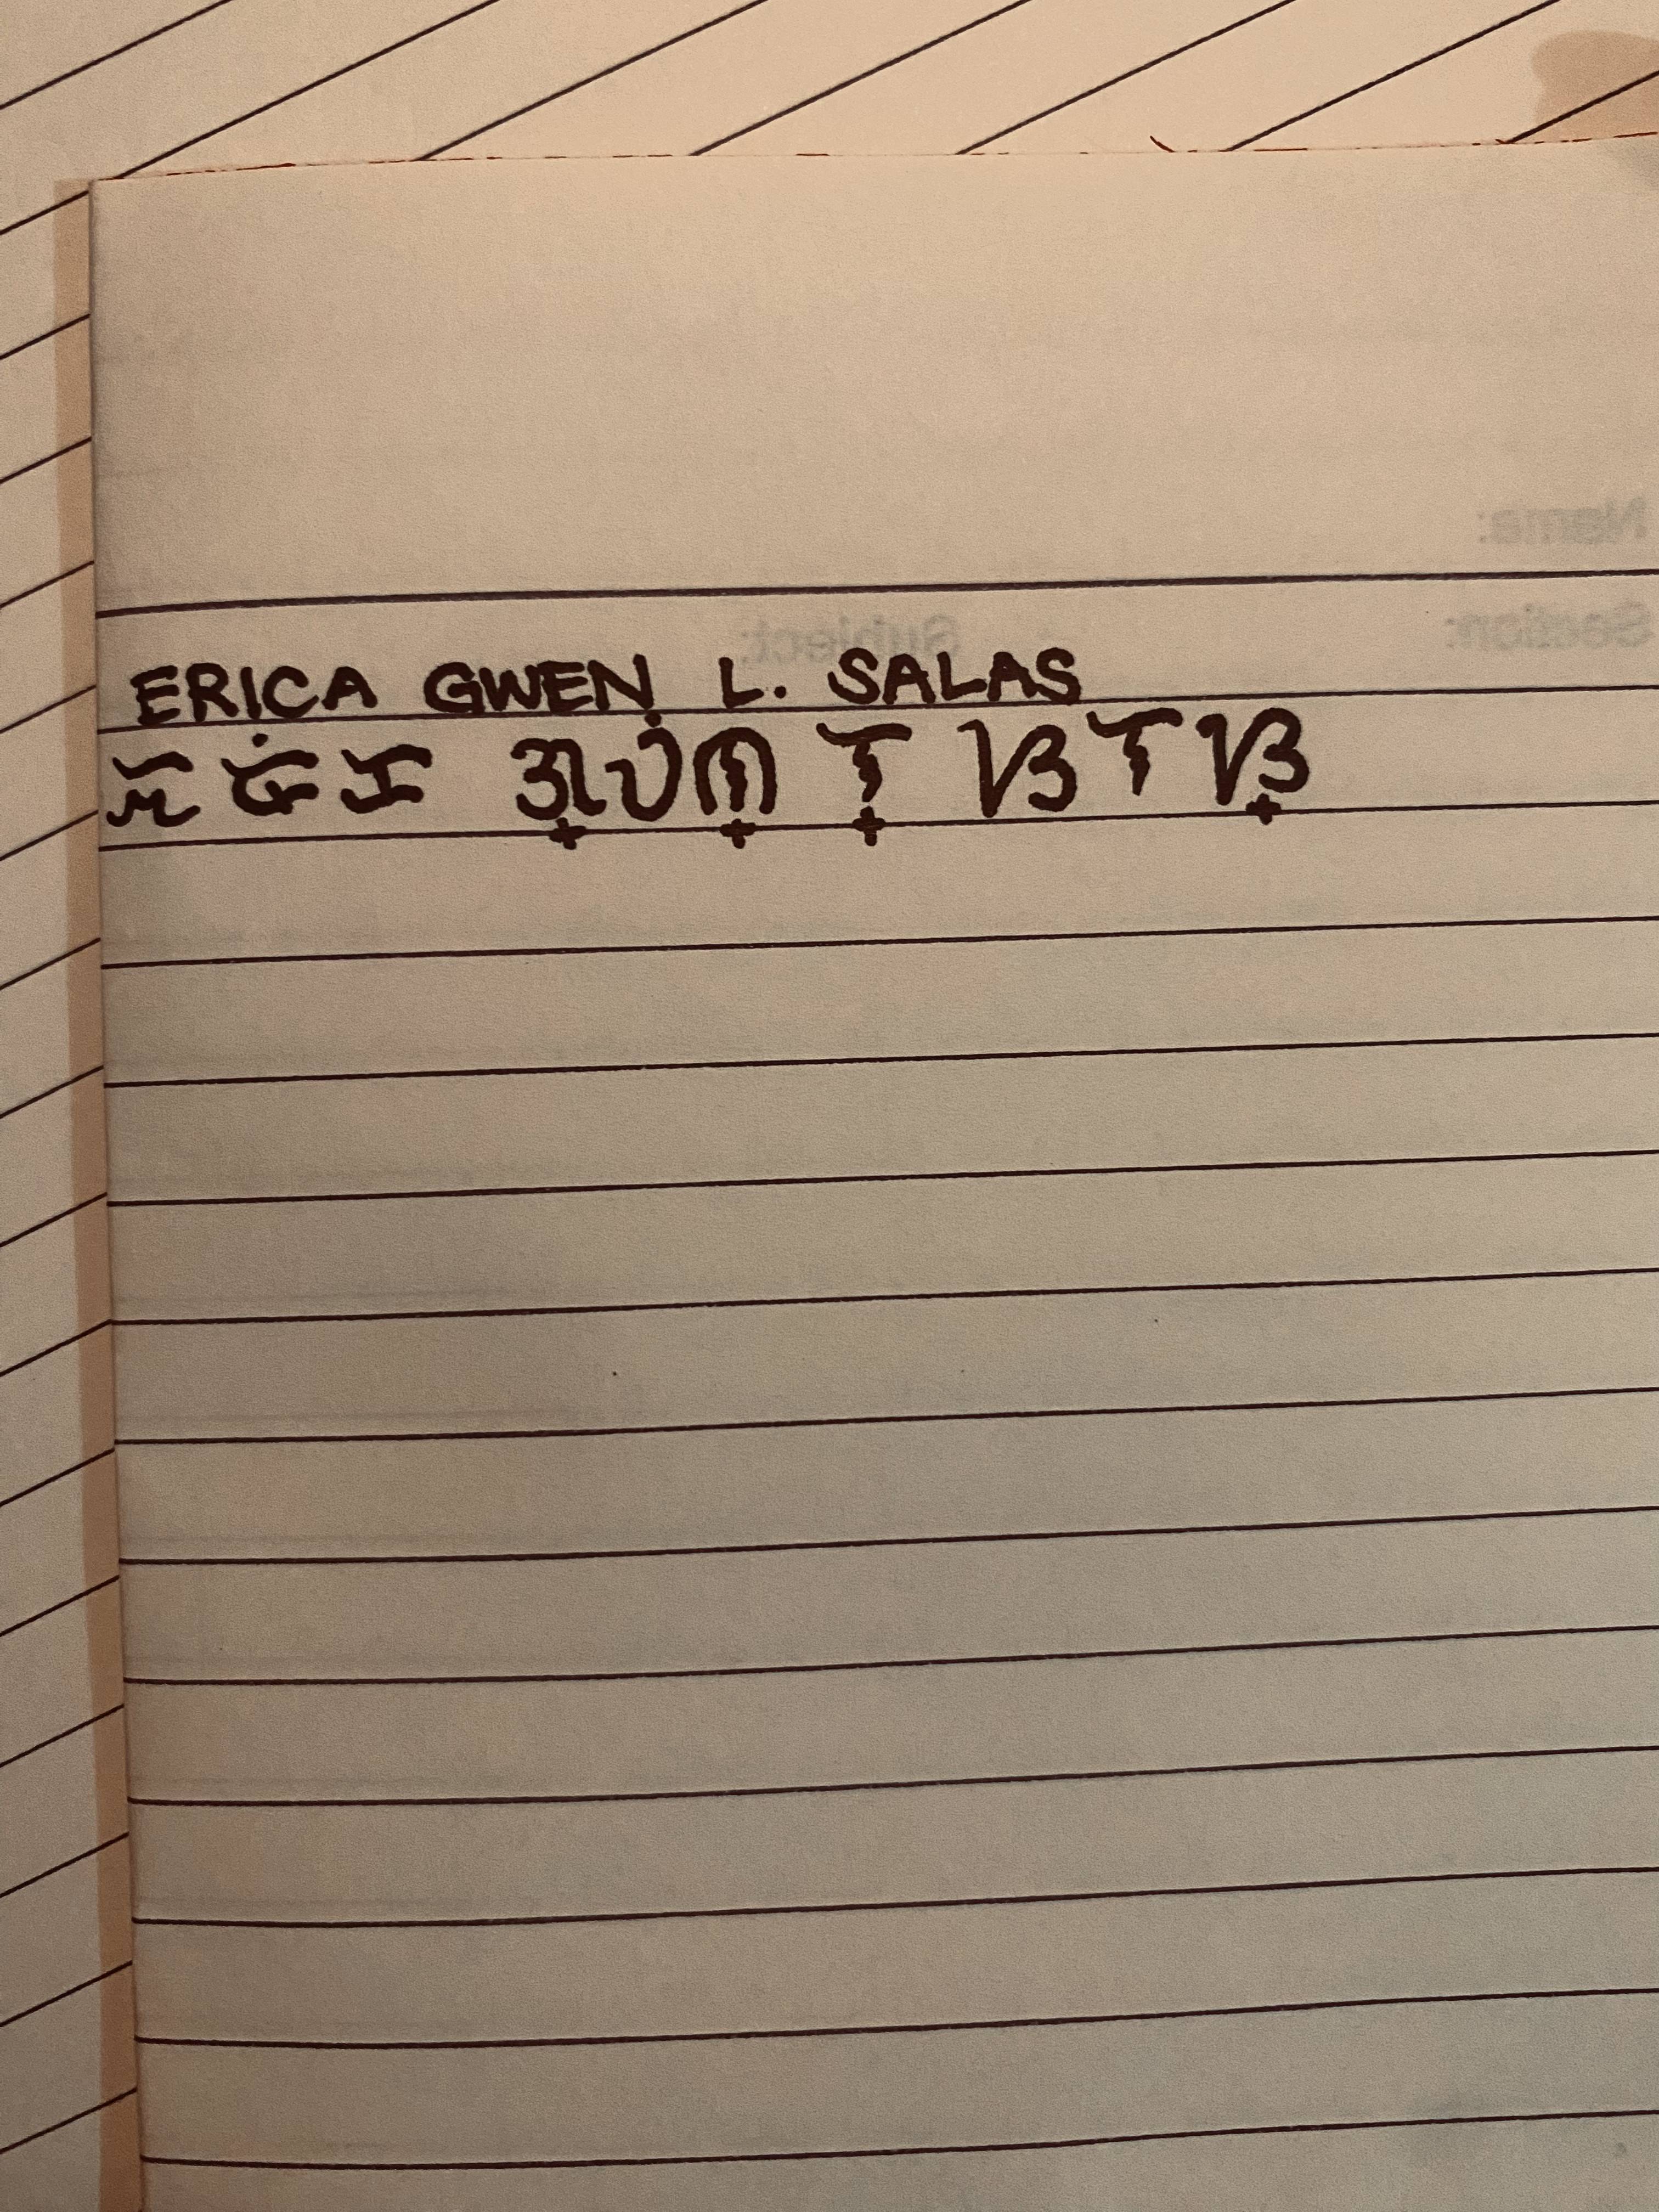 Name:
Subject: Section:
ERICA GWEN L. SALAS
ᜁᜍᜒᜃ ᜄ᜔ᜏᜒᜈ᜔ ᜎ᜔ ᜐᜎᜐ᜔